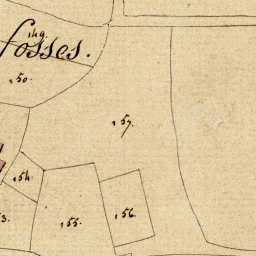 149.
fosses.
150.
157.
154.
156.
155.
3.